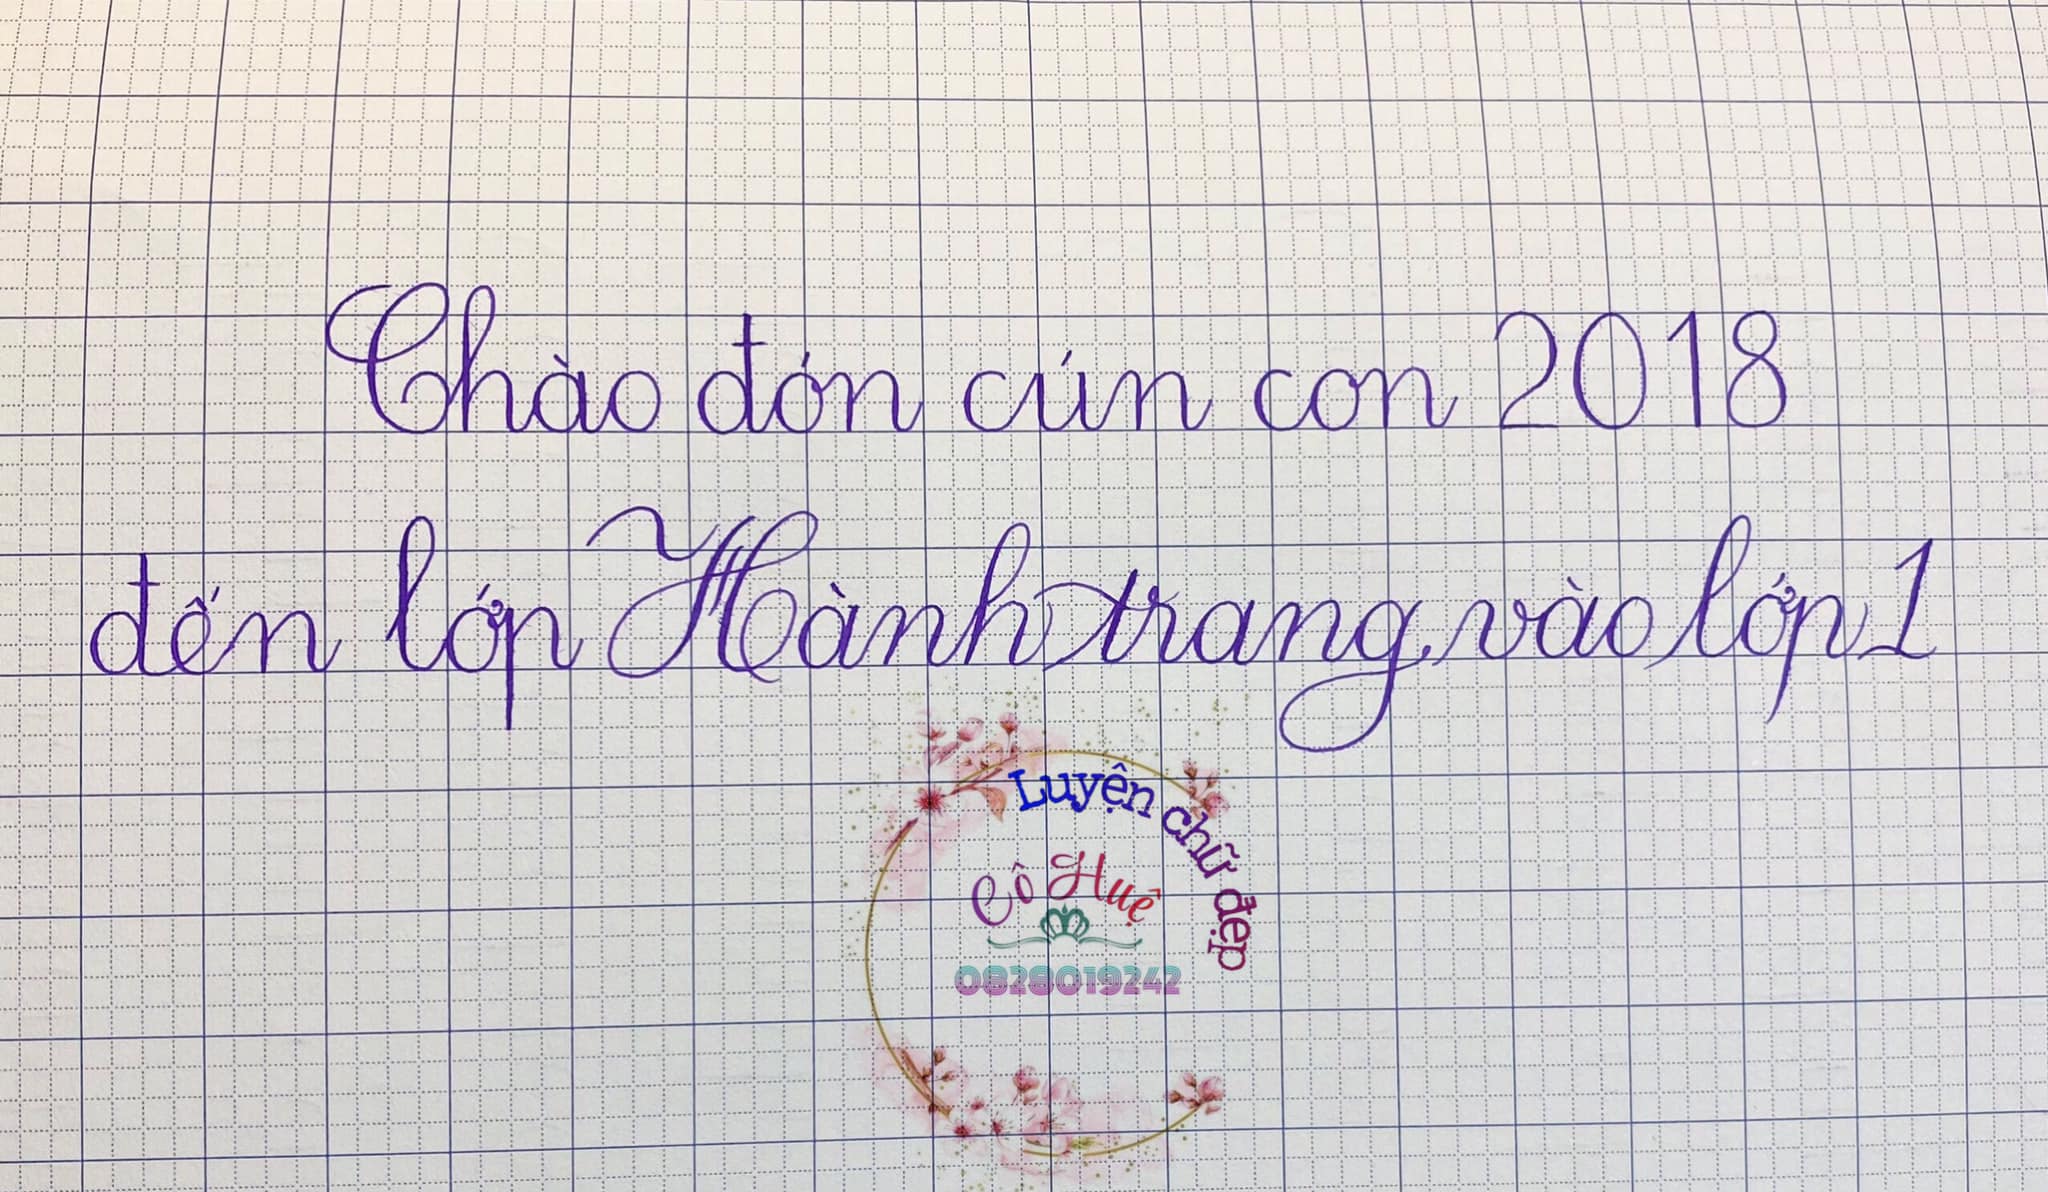 Chào đón cún con 2018
đến lớp Hành trang vào lớp 1
Luyện chữ đẹp
Cô Huệ
0828019242